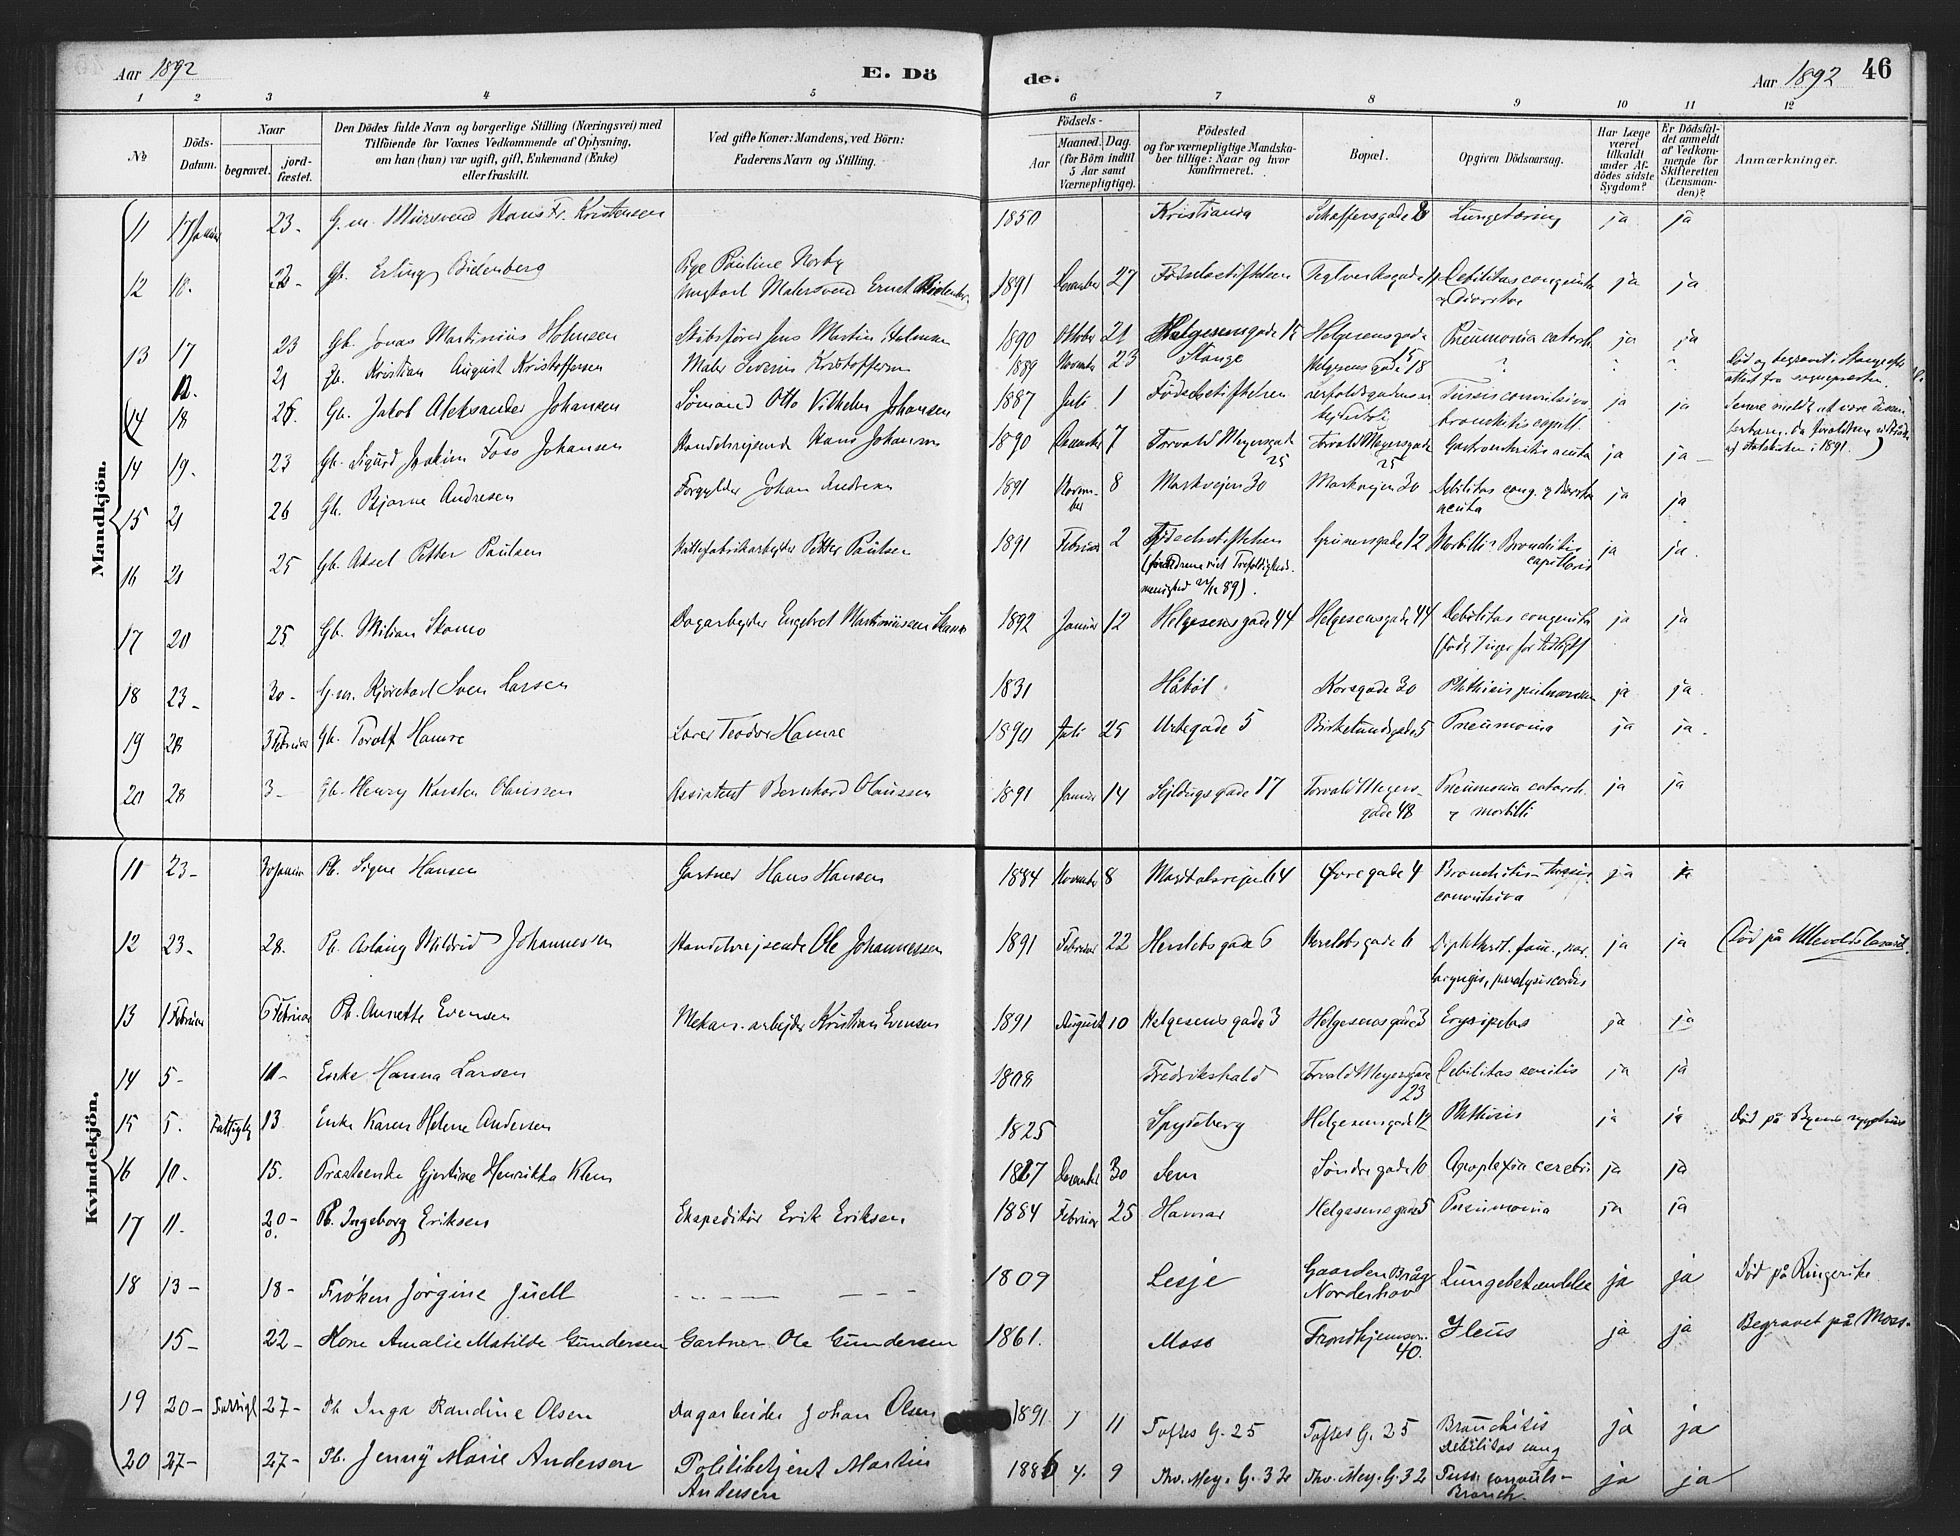 Aar 1892
E. Dö
de.
Aar 1892 46
1 2 3 4 5 6 7 8 9 10 11 12
No
Döds-
Datum.
Naar
begravet.
jord-
fæstet.
Den Dödes fulde Navn og borgerlige Stilling (Næringsvei) med
Tilföiende for Voxnes Vedkommende af Oplysning,
om han (hun) var ugift, gift, Enkemand (Enke)
eller fraskilt.
Ved gifte Koner: Mandens, ved Börn:
Faderens Navn og Stilling.
Födsels-
Aar
Maaned. Dag.
(for Börn indtil
5 Aar samt
Værnepligtige).
Födested
og for værnepligtige Mandska-
ber tillige: Naar og hvor
konfirmeret.
Bopæl.
Opgiven Dödsaarsag.
Har Læge
været
tilkaldt
under Af-
dödes sidste
Sygdom?
Er Dödsfal-
det anmeldt
af Vedkom-
mende for
Skifteretten
(Lensman-
den)?
Anmærkninger.
Mandkjön.
11 17 Januar 23- G.m. Mursvend Hans Fr. Kristensen 1850 Kristiania Schaffersgade Lungetæring ja ja
12 18. Gb. Erling Bidenberg Pige Pauline Norby
Ungkarl Malersvend Ernst 1891 December 27 Fødselsstiftelsen Debilitas congenita ja ja
13 17 23 Gb. Jonas Martinius Holmsen Skibsfører Jens Martin Holmsen 1890 Oktober 21 Helgesensgade 15 Helgesensgade 15 Pneumonia catarrh. ja ja
12. 21 Gb. Kristian August Kristoffersen Maler Severin Kristoffersen 1889 Novemb 23 Stange Helgesensgade 18 ? Død og begravet i Stange efter
attest fra sognepresten.
14 18 26. Gb. Jakob Aleksander Johansen Sømand Otto Vilhelm Johansen 1887 Juli 1 Fødselsstiftelsen Tussis convulsiva
bronchitis capill. ja ja Senere meldt at være dissen-
i 1891.
14 19. 23 Gb. Sigurd Joakim Foss Johansen Handelsrejsende Hans Johansen 1890 December 7 Torvald Meyersgade
25 Torvald Meyersgade
25 Gastroenteritis acuta ja ja
15 21 26 Gb. Bjarne Andresen Forgylder Johan Andresen 1891 Novem-
ber 8 Markvejen 30 Markvejen 30 Debilitas cong.
acuta ja ja
16 21 25 Gb. Aksel Petter Paulsen Petter Paulsen 1891 Februar 2 Fødselsstiftelsen Grünersgade 12 Morbilli Bronchitis
capillaris ja ja.
17 20 25 Gb. Milian Skamo Dagarbejder Engebret Martiniusen Skamo 1892 Januar 12 Helgesensgade 44 Helgesensgade 44 Debilitas congenita ja ja
18 23- 30- G.m. Kjørekarl Sven Larsen 1831 Håbøl Korsgade 30 Phthisis pulmonum ja ja
19 28 3 Februar Gb. Torolf Hamre Lærer Teodor Hamre 1890 Juli 25 Urtegade 5 Birkelundsgade 5 Pneumonia ja ja.
20 28 3- Gb. Henry Karsten Olaussen Assistent Bernhard Olaussen 1891 Januar 14 Sejldugsgade 17 Torvald Meyers-
gade 48 Pneumonia catarrh.
& morbilli ja ja
Kvindekjön.
11 23- 30 Januar Pb. Signe Hansen Gartner Hans Hansen 1884 November 8 Øvregade 4 Bronchitis - tussis
convulsiva ja ja
12 23- 28. Pb. Aslaug Mildrid Johannessen Handelsrejsende Ole Johannessen 1891 Februar 22 Herslebsgade 6 Herslebsgade 6 Diphtherit. fauc., nar.
laryngis, paralysis cordis ja ja (Død på Ullevoldslasaret.
13 1 Februar 6 Februar Pb. Annette Evensen Mekan. arbejder Kristian Evensen 1891 August 10 Helgesensgade 3 Helgesensgade 3 Erysipelas ja ja
14 5- 11- Enke Hanna Larsen 1808 Fredrikshald Torvald Meyersgade
23 Debilitas senilis ja ja
15 5. Fattiglig 13 Enke Karen Helene Andersen 1825 Spydeberg Helgesensgade Phthisis ja ja Død på Byens sygehus
16 10. 15. Præsteenke Gjertine Henrikka Klem December 30 Sem Søndregade 10 Apoplexia cerebri ja ja
17 11. 20- Pb. Ingeborg Eriksen Ekspeditør Erik Eriksen 1884 Februar 25 Hamar Helgesensgade 5 Pneumonia ja ja
18 13- 18- Frøken Jörgine Juell 1809 Lesje Gaarden
Norderhov Lungebetændelse ja ja Død på Ringerike
15- 22- Kone Amalie Matilde Gundersen Gartner Ole Gundersen 1861. Moss Trondhjemsv.
40. Ileus ja ja Begravet på Moss.
19 20- Fattigl 27- Pb Inga Randine Olsen Dagarbeider Johan Olsen 1891 11 Toftes G. 25 Toftes G. 25 Bronchitis
debilitas cong ja ja
20 27- 27- Pb. Jenny Marie Andersen Politibetjent Martin
Andersen 1886 4. 9 Thv. Mey. G. 32 Thv. Mey. G. 32 Tuss. convuls-
Bronch. ja ja